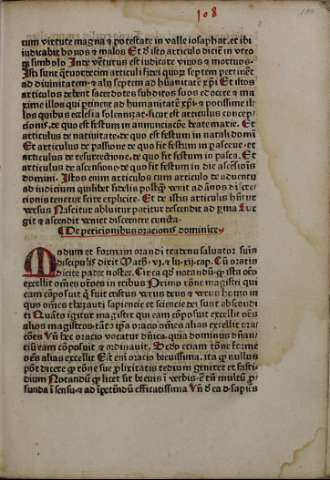 108
tum virtute magna ⁊ potestate in valle iosaphat. et ibi
iudicabit bonos ⁊ malos Et ꝺ isto articulo dicit̃ in vtroq̃
simbolo Inde vẽturus est iudicare viuos ⁊ mortuos.
Isti sunt q̃tuordecim articuli fidei quoꝝ septem pertinẽt
ad diuinitatem ⁊ alij septem ad hũanitatẽ xp̃i Et istos
articulos debent sacerdotes subditos suos edocere ⁊ ma
xime illos qui ꝑtinent ad humanitatẽ xp̃i ⁊ potissime il-
los quibus ecclesia solennizat. sicut est articulus concep-
cionis. de quo est festum in annunciacõe beate marie. Et
articulus de natiuitate. de quo est festum in natali domini
Et articulus de passione de quo fit festum in pasceue. et
articulus de resurrectione. de quo fit festum in pasca. Et
articulus de ascensione. de quo fit festum in die ascẽsiõis
domini. Istos enim articulos cum articulo de aduentu
ad iudicium quilibet fidelis postq̃ venit ad ãnos discre-
cionis tenetur scire explicite. Et de istis articulis habẽtur
versus Nascitur abluitur patitur descendit ad yma Sur
git ⁊ ascendit veniet discernere cuncta
De peticionibus oracionis dominice
Modum et formam orandi tradens saluator suis
discipulis dicit Math. vi. ⁊ lu. xi. cap. Cũ oratis
dicite pater noster. Circa qd̃ notandũ. ꝙ ista orõ
excellit omẽs orões in tribus Primo rõne magistri qui
eam cõposuit q̃ fuit cristus verus deus ⁊ verus homo in
quo omẽs thezauri sapiencie et sciencie dei sunt absconditi
Quãto igitur magister qui eam cõposuit excellit oẽs
alios magistros. tãto ip̃a oracio omẽs alias excellit ora-
cões Vñ hec oracio vocatur dñica. quia dominus dñan-
tiũ eam cõposuit ⁊ ordinauit. Scďo eciam rõne forme
oẽs alias excellit Est eni oracio breuissima. ita ꝙ nullus
põt dicere ꝙ rõne sue prolixitatis tedium generet et fasti-
dium Notandũ ꝙ licet sit breuis ĩ verbis. est tñ multũ pro
funda ĩ sensu. ⁊ ad ĩpetrandũ efficatissima Vñ dicit sapiens